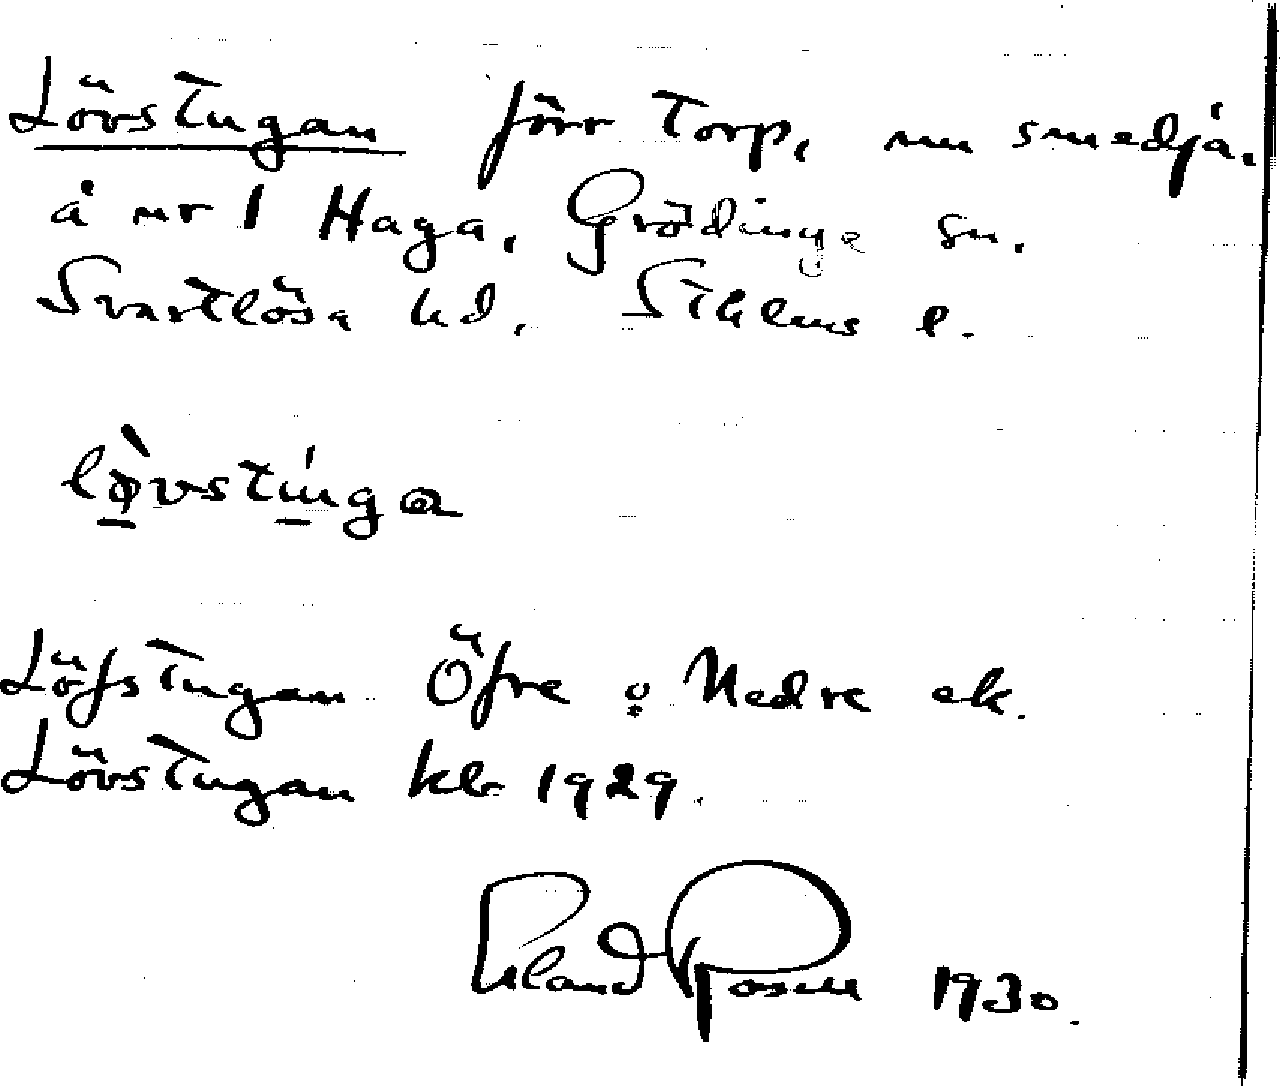 Lövstugan förr torp, nu smedja.
å nr 1 Haga, Grödinge sn.
Svartlösa hd, Sthlms l.
Löfstugan Öfre o Nedre ek.
Lövstugan kbr 1929.
Erland Rosell 1930.